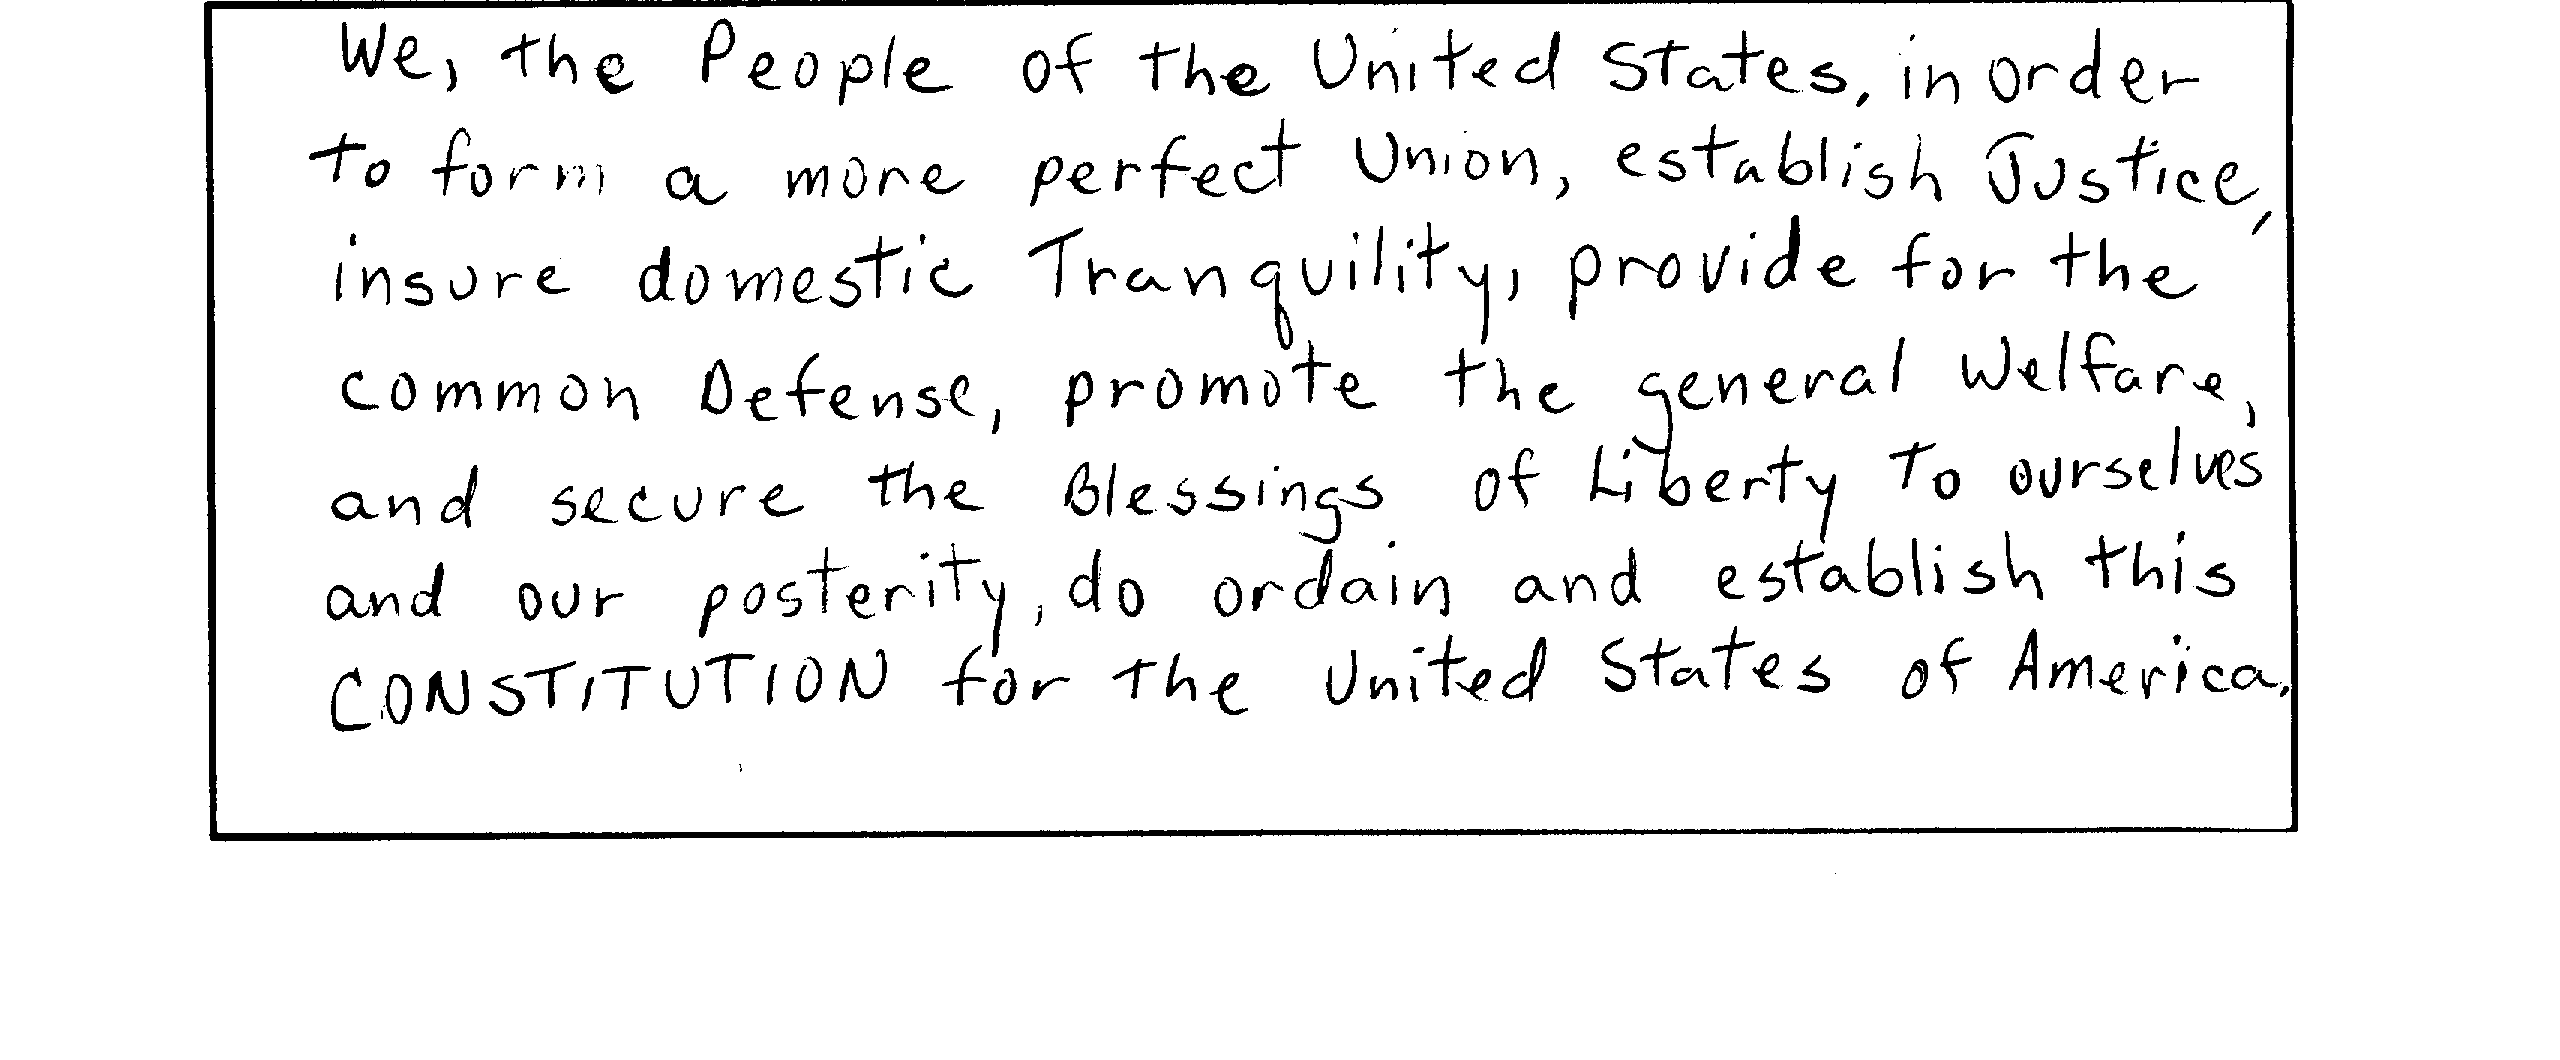 We, the People of the United States, in order
to form a more perfect Union, establish Justice,
insure domestic Tranquility, provide for the
common Defense, promote the general Welfare,
and secure the Blessings of Liberty to ourselves
and our posterity, do ordain and establish this
CONSTITUTION for the United States of America.